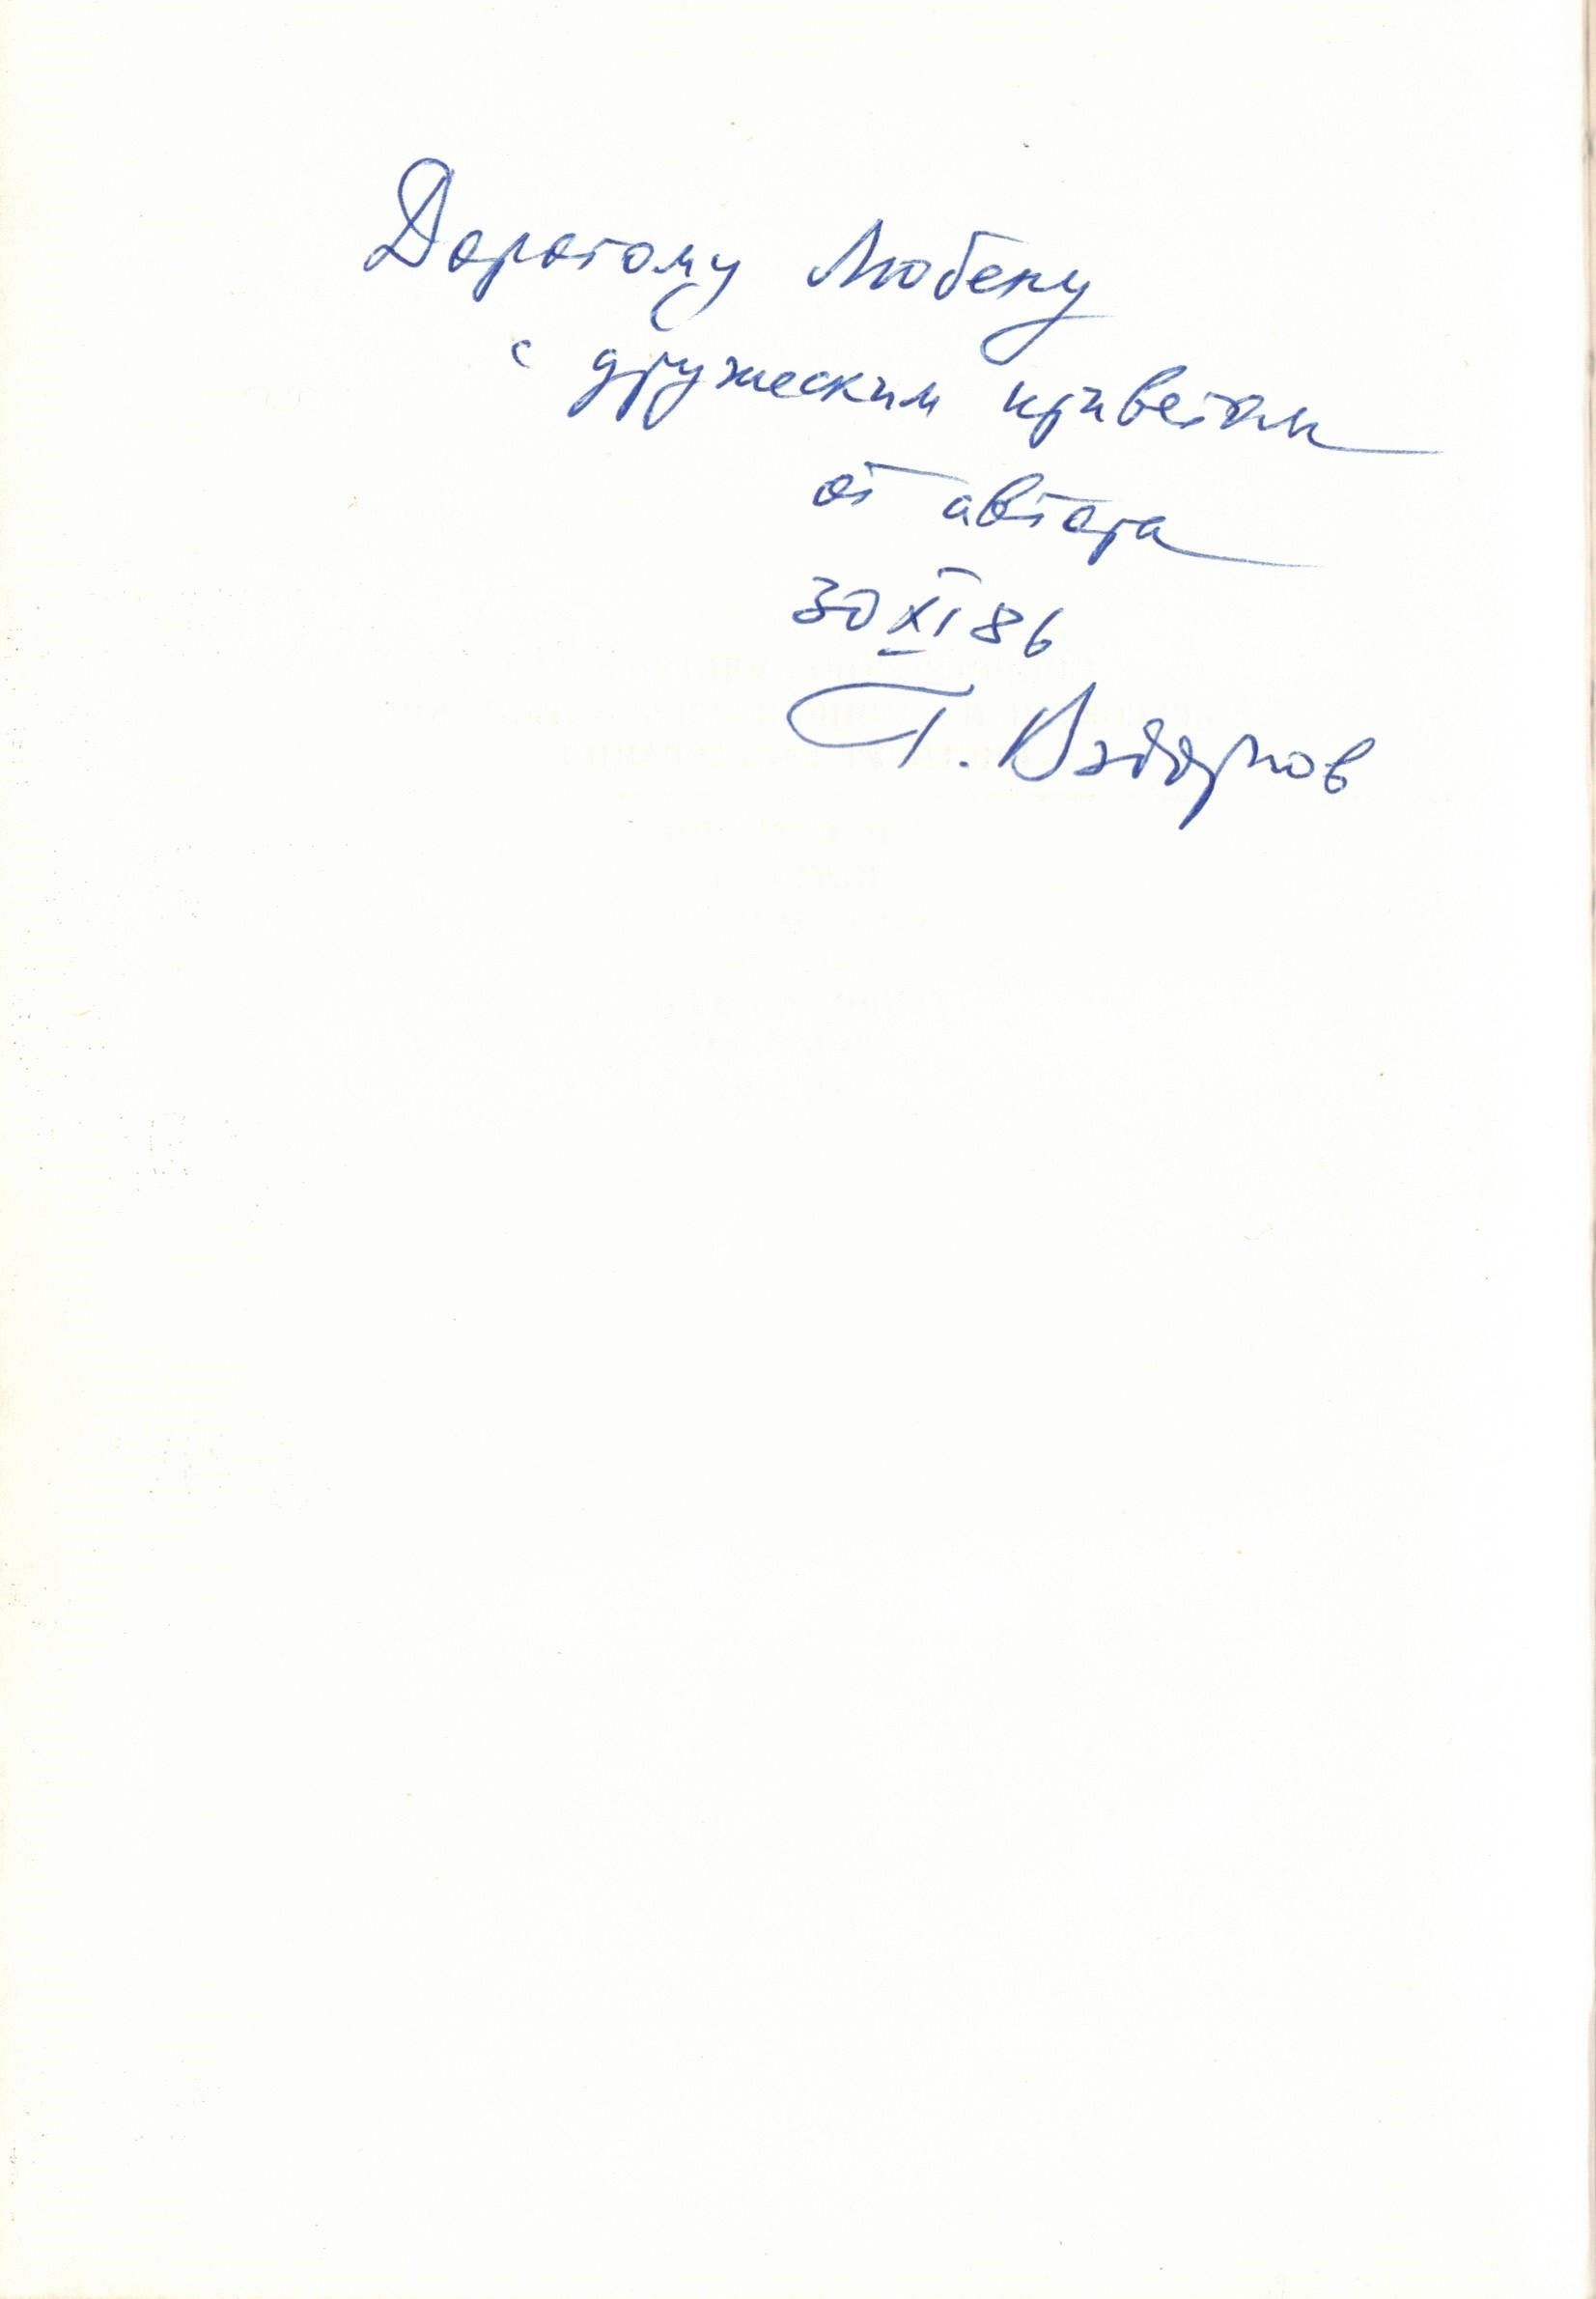 Дорогому Любену
с дружеским приветом
от автора
30 XI 86
Г. Вздорнов